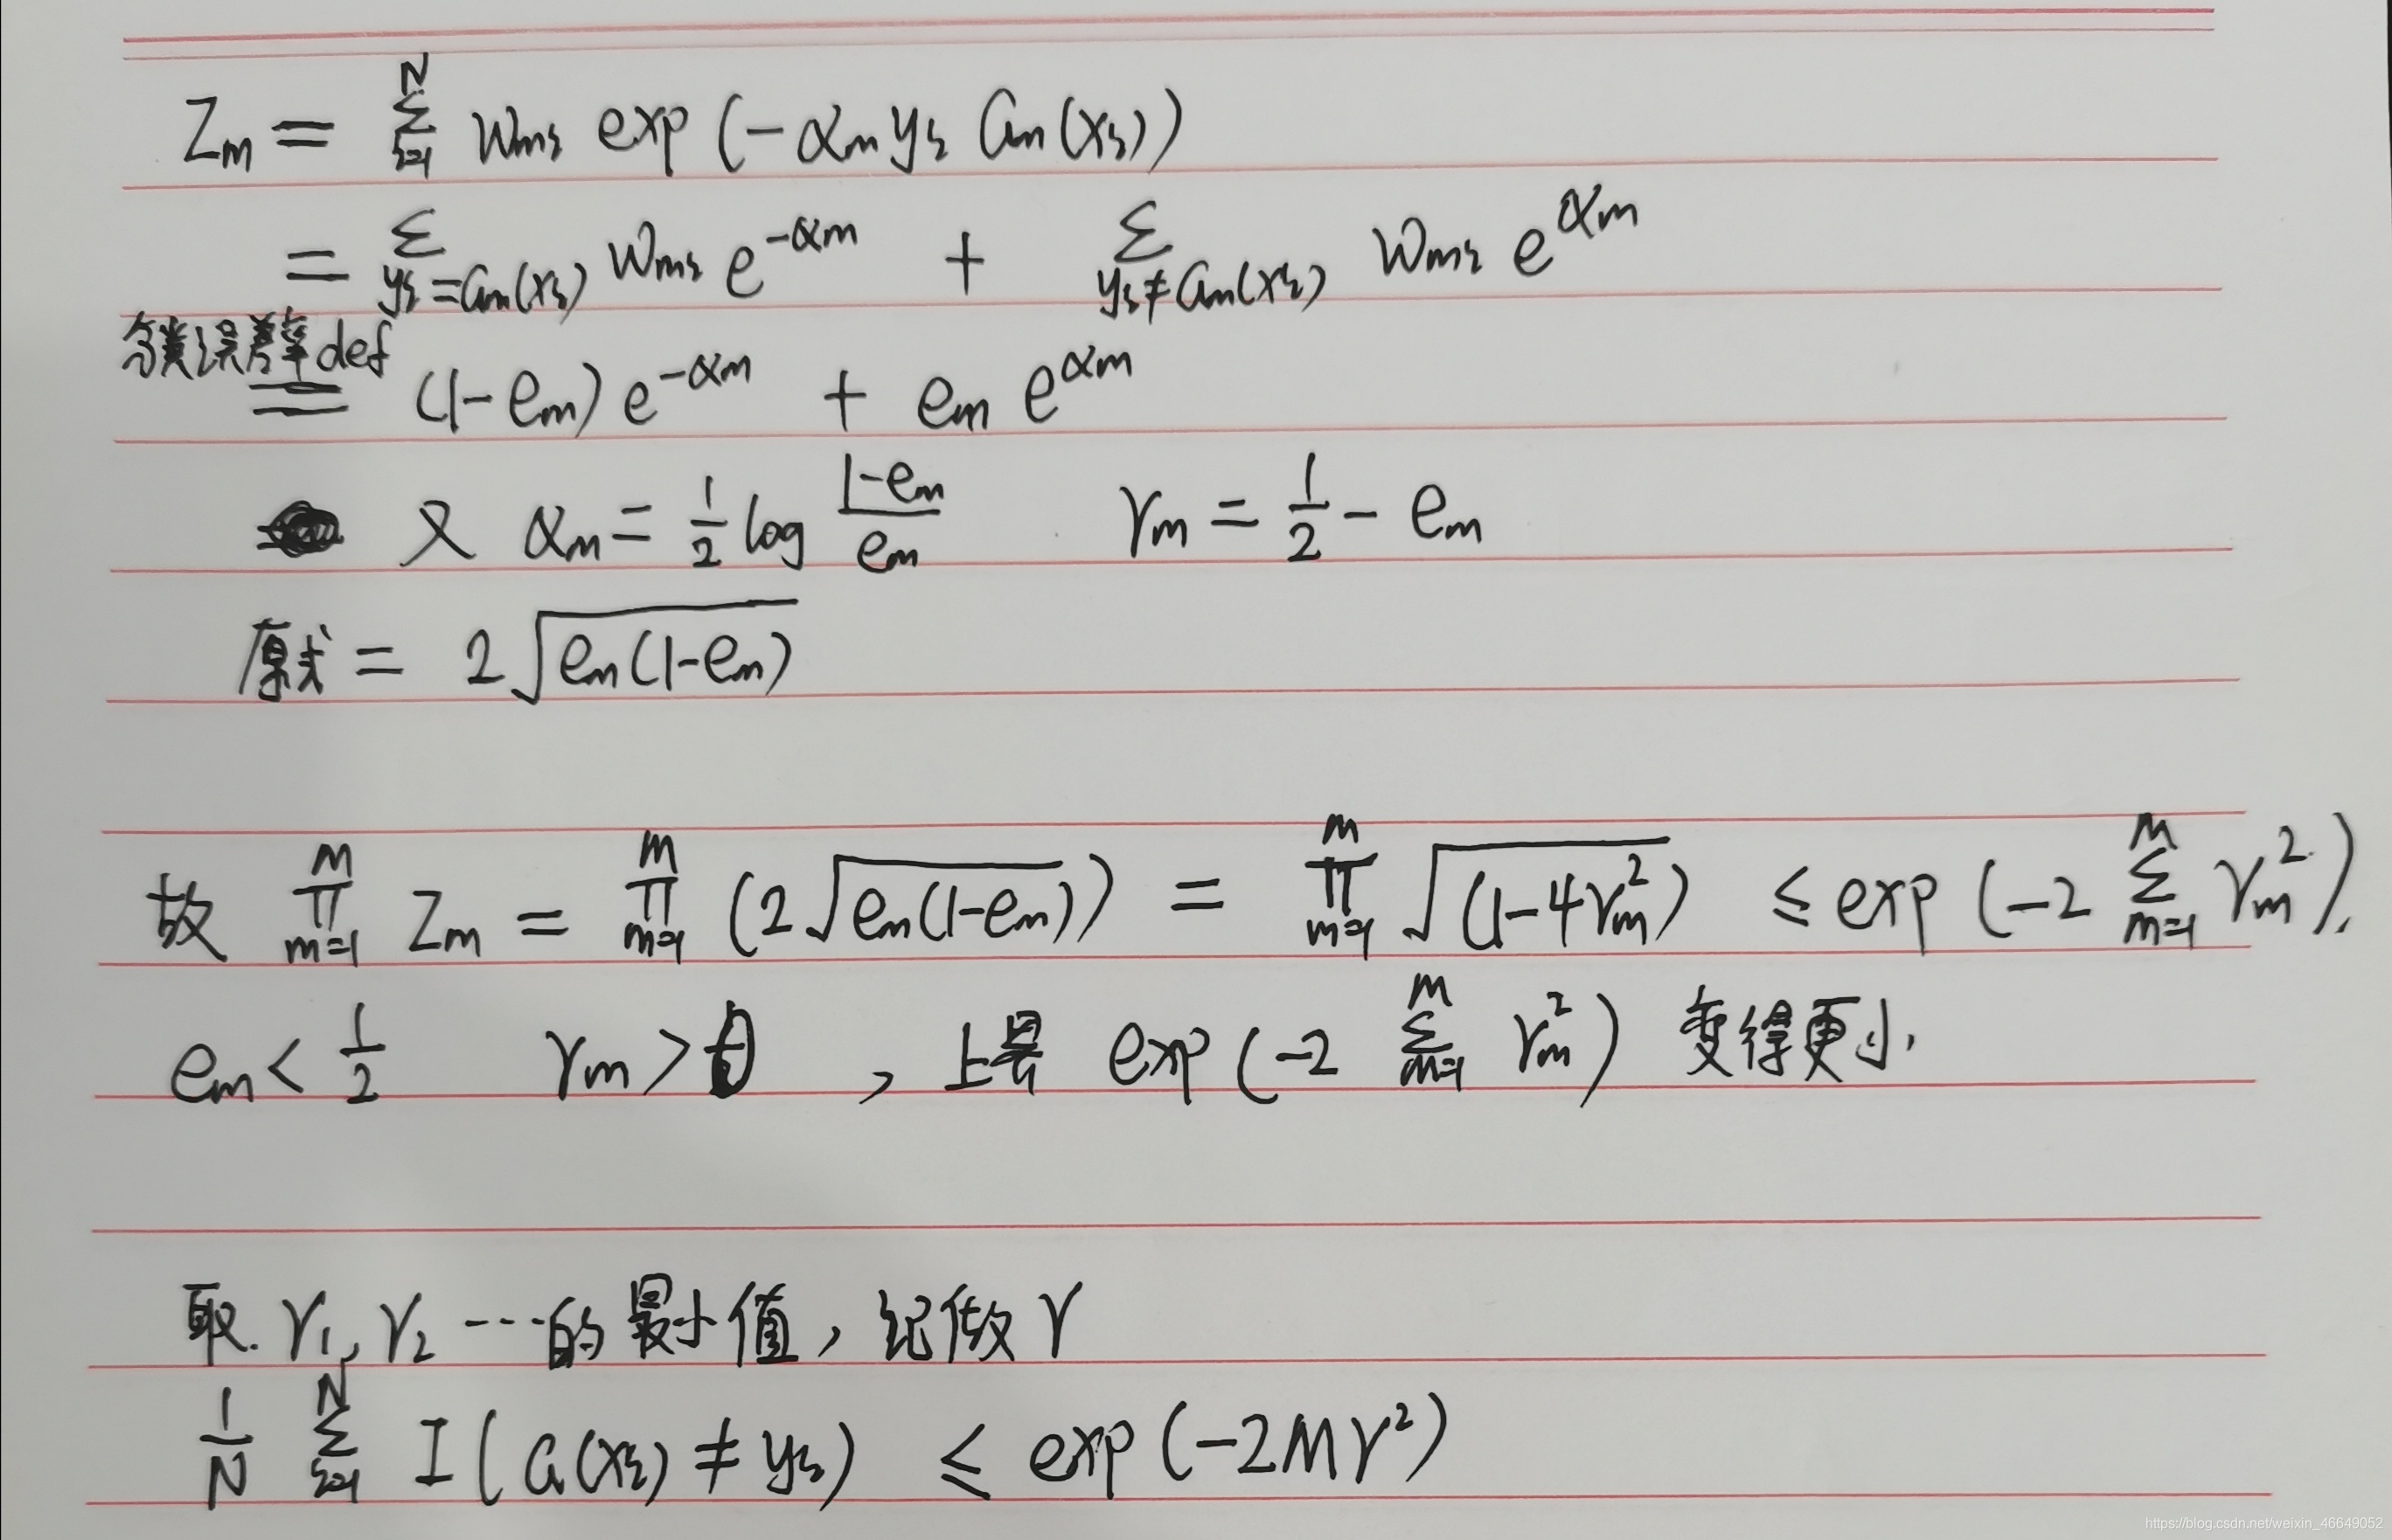 Z_m = \sum_{i=1}^{N} w_{mi} exp(-α_m y_i G_m(x_i))
= \sum_{y_i=G_m(x_i)} w_{mi} e^{-α_m} + \sum_{y_i≠G_m(x_i)} w_{mi} e^{α_m}
分类误差率def
= (1-e_m) e^{-α_m} + e_m e^{α_m}
又 α_m = \frac{1}{2} log \frac{1-e_m}{e_m} γ_m = \frac{1}{2} - e_m
原式 = 2\sqrt{e_m(1-e_m)}
故 \prod_{m=1}^{M} Z_m = \prod_{m=1}^{M} (2\sqrt{e_m(1-e_m)}) = \prod_{m=1}^{M} \sqrt{(1-4γ_m^2)} ≤ exp(-2 \sum_{m=1}^{M} γ_m^2).
e_m < \frac{1}{2} γ_m > 0 , 上界 exp(-2 \sum_{m=1}^{M} γ_m^2) 变得更小,
取. γ_1, γ_2 ···的最小值, 纪做 γ
\frac{1}{N} \sum_{i=1}^{N} I(G(x_i) ≠ y_i) ≤ exp(-2Mγ^2)
https://blog.csdn.net/weixin_46649052